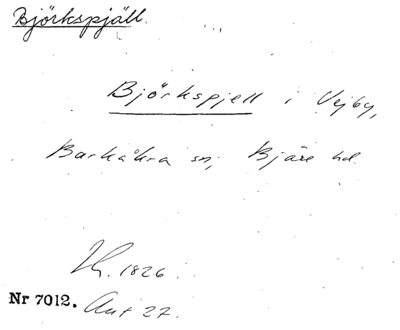 Björkspjäll.
Björkspjell i Vejby,
Barkåkra sn, Bjäre hd.
1826.
Nr 7012. Aut 27.